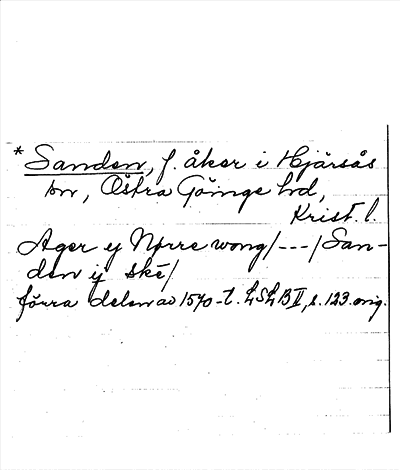 * Sanden, f. åker i Hjärsås
sn, Östra Göinge hd,
Krist. l.
Ager ij Nørre wong/---/San-
den ij skē/
förra delen av 1570-t. LSLB II, s. 123. orig.